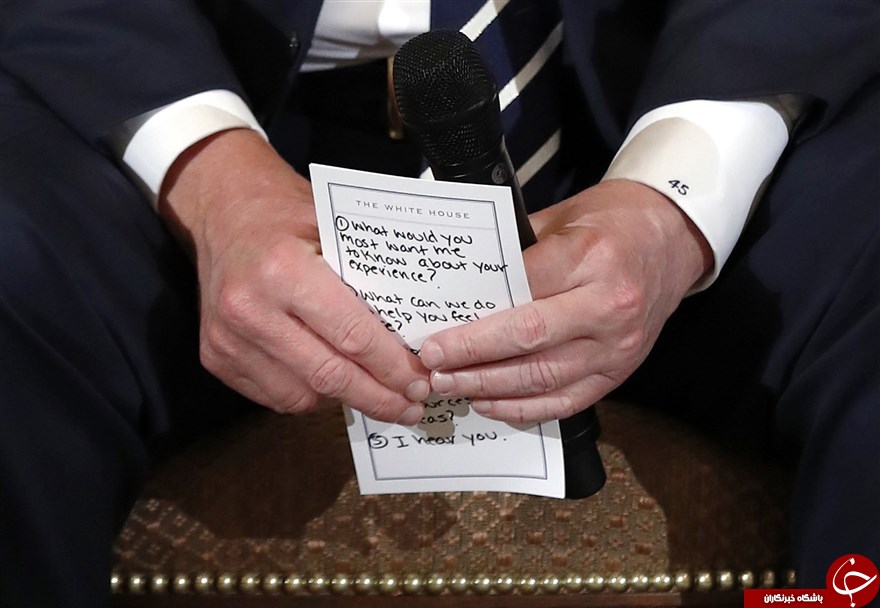 THE WHITE HOUSE
① What would you
most want me
to know about your
experience?
What can we do
help you feel
⑤ I hear you.
45
باشگاه خبرنگاران